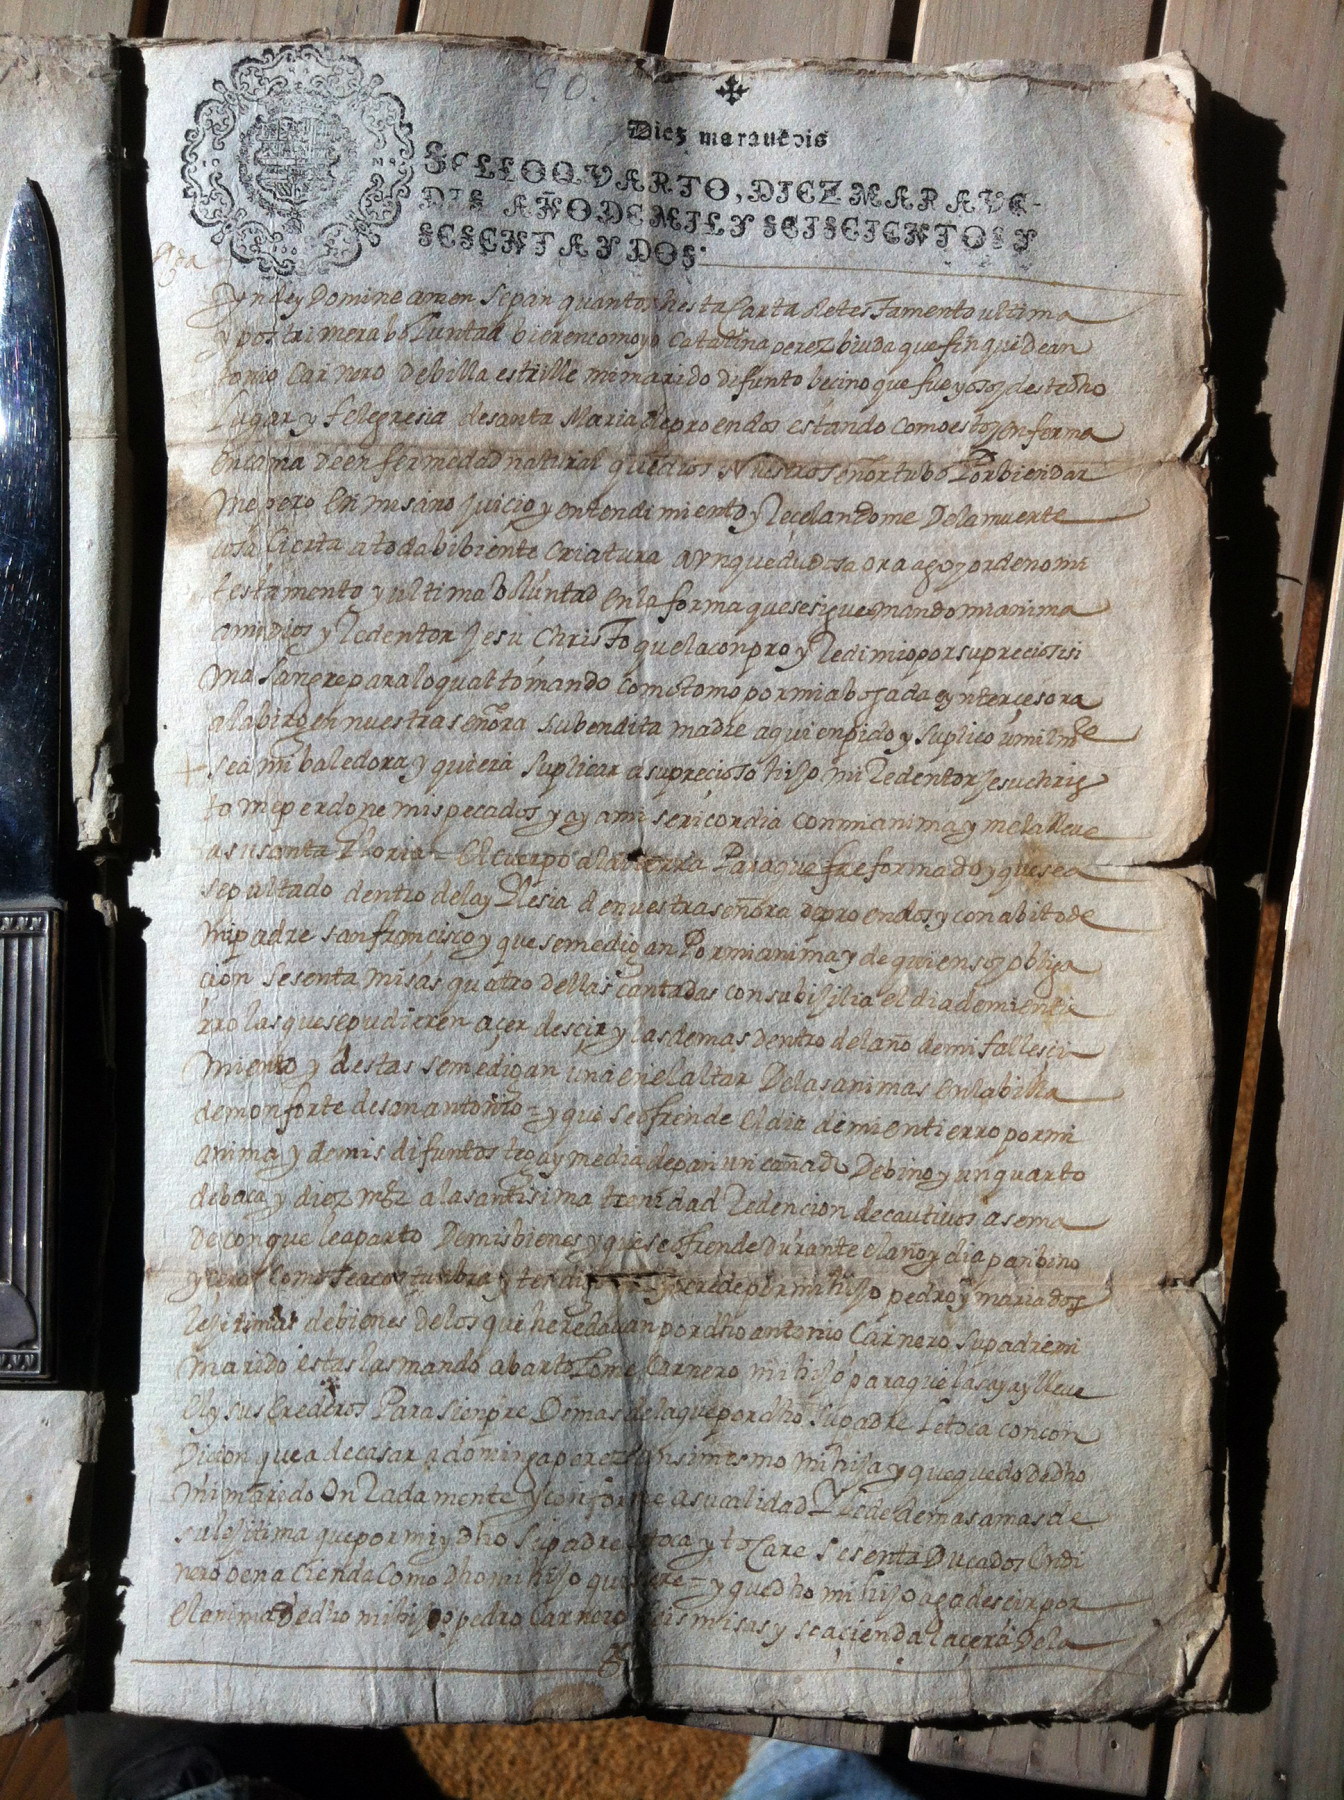 90.
Diez marauedis
SELLO QVARTO, DIEZ MARAVE-
DIS AÑO DE MIL Y SEISCIENTOS Y
SESENTA Y DOS.
Yn dey Domine amen sepan quantos hesta Carta de testamento ultima
y postrimera boluntad bieren como yo Catalina perez biuda que finqui de an
tonio Carnero de billaestrille mi marido difunto becino que fue y o soy deste dho
lugar y feligresia de santa Maria de proendos estando como estoy enferma
en cama de enfermedad natural que dios Nuestro señor tubo Por bien dar
me pero en mi sano juicio y entendimiento y Recelandome De la muerte
cosa cierta a toda bibiente criatura aynque dudosa ora ago y ordeno mi
testamento y ultima boluntad en la forma que se sigue mando mi anima
a mi dios y Redentor Jesu Christo que la conpro y Redimio por su preciosisi
ma sangre para lo qual tomando como tomo por mi abogada e yntercesora
a la birgen nuestra señora su bendita madre a quien pido y suplico umilmte
sea mi baledora y quiera suplicar a su precioso hijo mi Redentor Jesuchris
to me perdone mis pecados y ay a misericordia con mi anima y me la lleve
a su santa Gloria = El cuerpo a la tierra Para que fre formado y que sea
sepultado dentro de la yglesia de nuestra señora de proendos y con abito de
mi padre san francisco y que se me digan Por mi anima y de quien soy obliga
cion sesenta misas quatro dellas cantadas con su bijilia el dia de mi entie
rro las que se pudieren açer desçir y las demas dentro del año de mi fallesci
miento y destas se me digan una en el altar De las animas en la billa
de monforte de san antonio = y que se ofrende el dia de mi entierro por mi
anima y de mis difuntos tega y media de pan un cañado De bino y un quarto
de baca y diez mrs a la santisima trenidad Redencion de cautivos a sema
De con que le aparto De mis bienes y que se ofrende durante el año y dia pan bino
y çera como se acostumbra y tendi erede por mi hijo pedro y maria dos
lejitimas de bienes de los que heredavan por dho antonio Carnero su padre mi
marido estas las mando a bartolome Carnero mi hijo para que las aya y lleve
el y sus erederos Para sienpre Demas de la que por dho su padre le toca con con
dicion que a de casar a dominga perez ansimesmo mi hija y que quedo de dho
mi marido onRadamente y conforme a su calidad y le de demas a mas de
su lejitima que por mi y dho su padre le toca y tocare sesenta Ducados en di
nero o en acienda como dho mi hijo quisiere = y que dho mi hijo aga descir por
el anima de dho mi hijo pedro Carnero seis misas y se açienda laçera De la